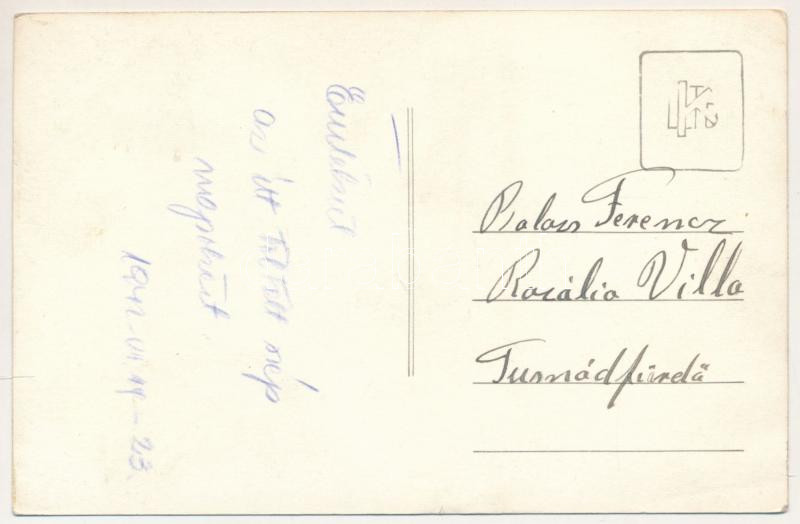 Emlékül
az itt töltött szép
napokért.
1942 VII 19-23.
Balazs Ferencz
Rozália Villa
Tusnádfürdő